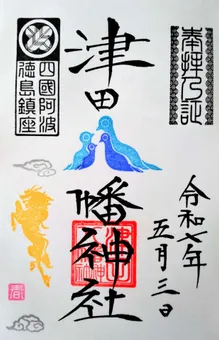 奉拝乃証
令和六年
五月三日
津田
八幡神社
四國阿波
徳島鎮座
春